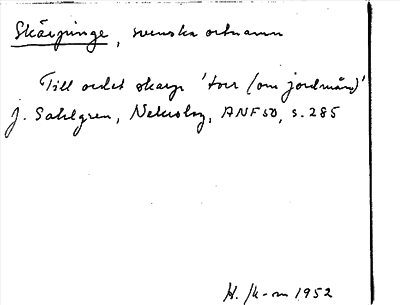 Skärpinge, svenska ortnamn
Till ordet skarp 'torr (om jordmån)'
J. Sahlgren, Nekrolog, ANF 50, s. 285
H. K-m 1952